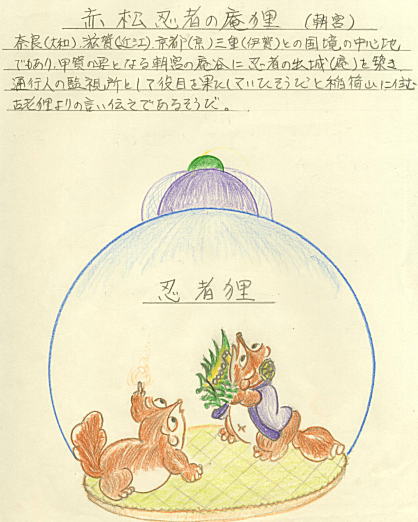 赤松忍者の庵狸 (朝宮)
奈良(大和).滋賀(近江).京都(京)三重(伊賀)との国境の中心地
でもあり.甲賀の要となる朝宮の庵谷に忍者の出城(庵)を築き
通行人の監視所として役目を果たしていたそうだと稲荷山に住む
古老狸よりの言い伝えであるそうだ。
忍者狸